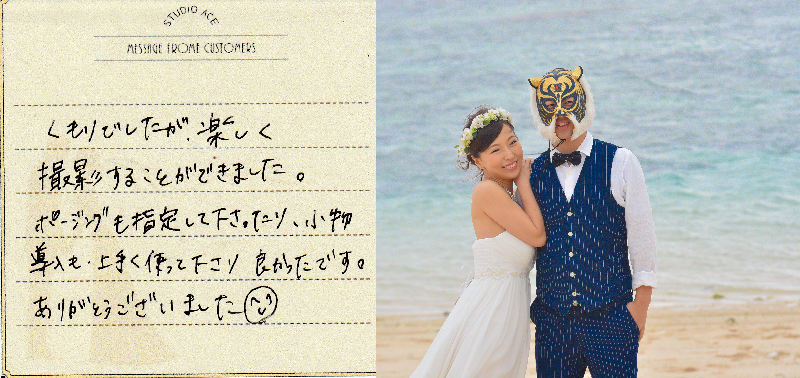 STUDIO ACE
MESSAGE FROME CUSTOMERS
くもりでしたが、楽しく
撮影することができました。
ポージングも指定して下さったり、小物
導入も上手く使って下さり良かったです。
ありがとうございました